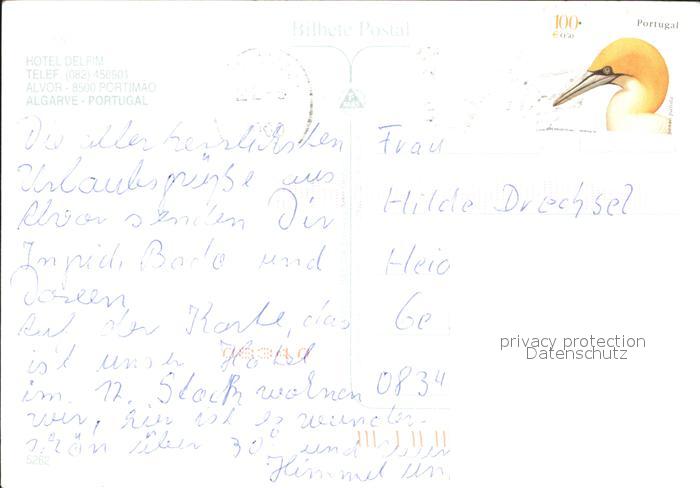 Bilhete Postal
100.
€ 0,50
Portugal
HOTEL DELFIM
TELEF. (082) 458901
ALVOR - 8500 PORTIMÃO
ALGARVE - PORTUGAL
Die allerherzlichsten
Urlaubsgrüße aus
Alvor senden Dir
Ingrid, Bodo und
Doreen
Auf der Karte, das
ist unser Hotel
im 12. Stock wohnen
wir, hier ist es wunder-
schön über 30° und
Himmel
5262
Frau
Hilde Drechsel
Heid
Ge
0834
privacy protection
Datenschutz